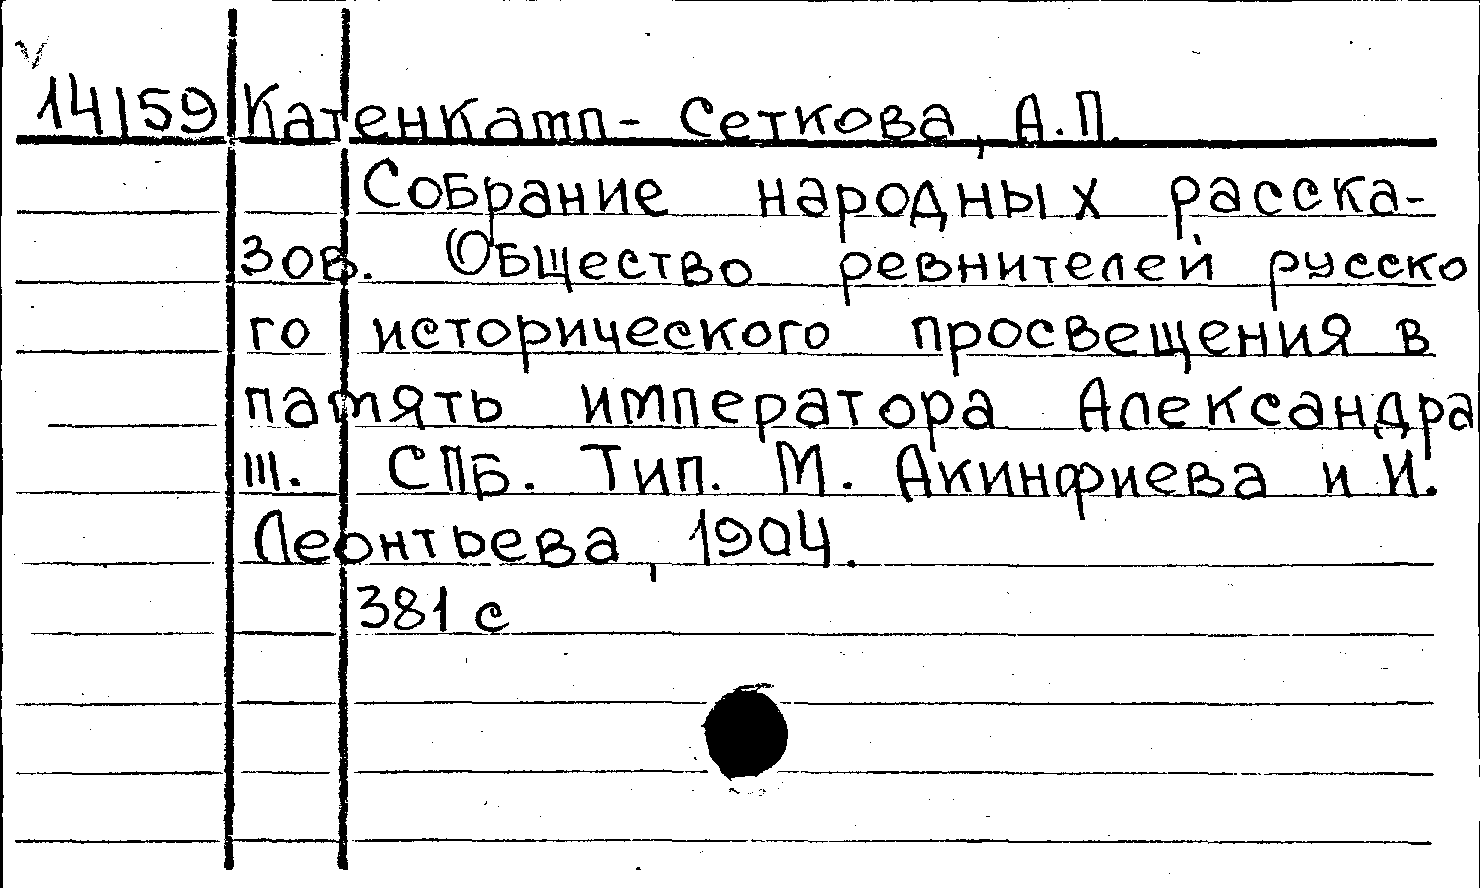 14159 Катенкатп- Сеткова, А.П.
Собрание народных расска-
зов. Общество ревнителей русско
го исторического просвещения в
память императора Александра
III. СПБ. Тип. М. Акинфиева и И.
Леонтьева, 1904.
381 с